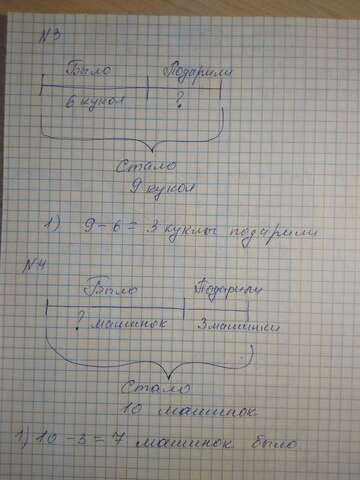 №3
Было Подарили
6 кукол ?
Стало
9 кукол
1) 9-6= 3 куклы подарили
№4
Было Подарили
? машинок 3 машинки
Стало
10 машинок
1) 10-3=7 машинок было